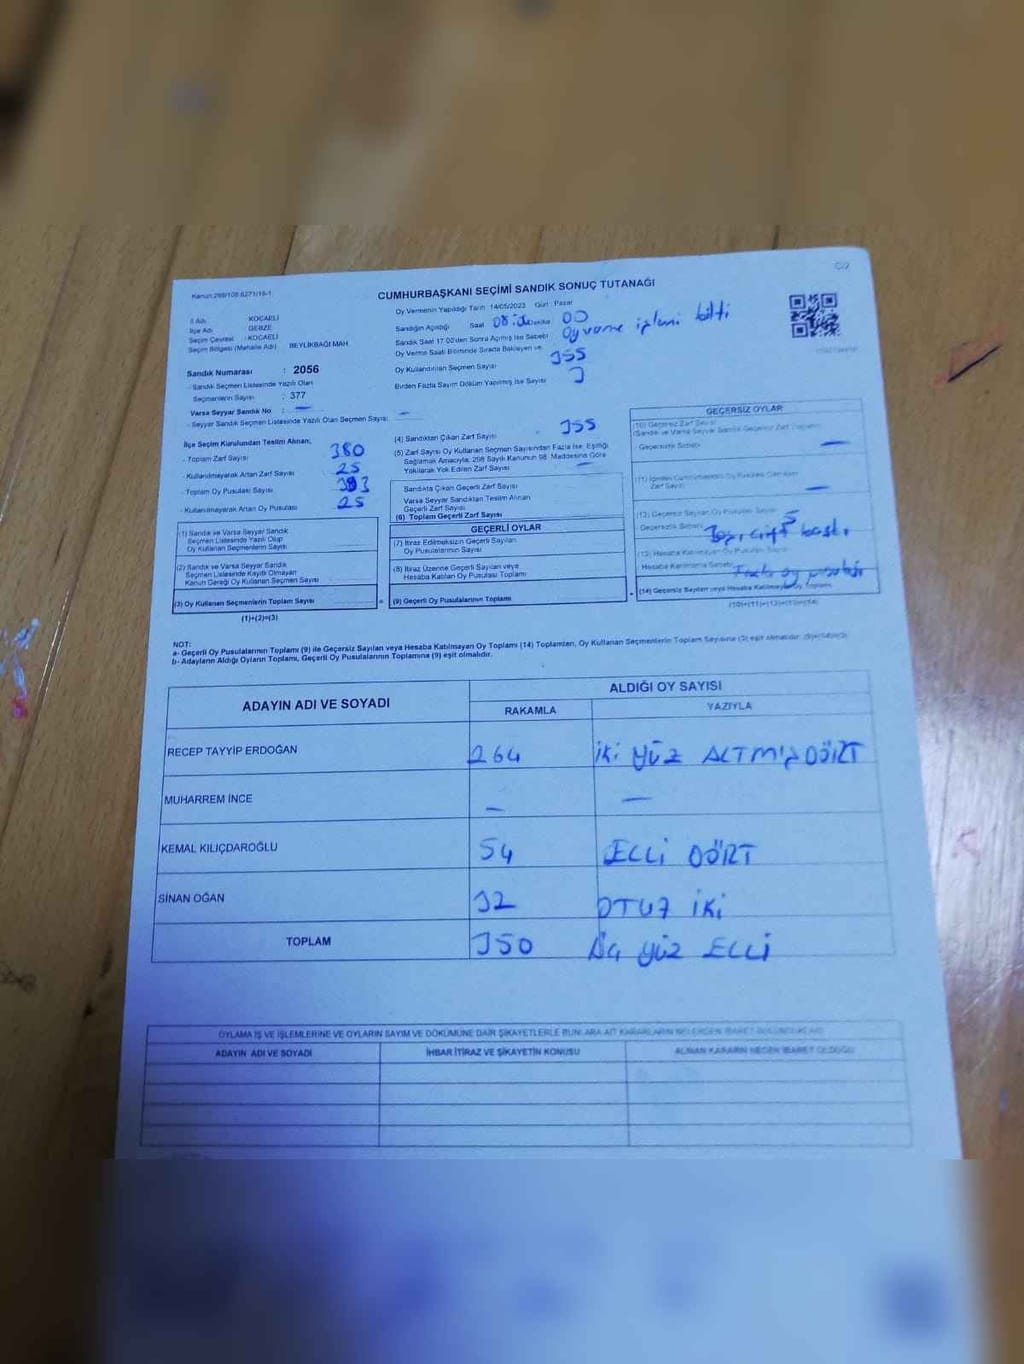 C/2
Kanun:298/105 6271/15-1
CUMHURBAŞKANI SEÇİMİ SANDIK SONUÇ TUTANAĞI
İl Adı : KOCAELİ
İlçe Adı : GEBZE
Seçim Çevresi : KOCAELİ
Seçim Bölgesi (Mahalle Adı) BEYLİKBAĞI MAH.
Oy Vermenin Yapıldığı Tarih 14/05/2023 Gün : Pazar
Sandığın Açıldığı Saat 08 Dakika 00
Sandık Saat 17.00'den Sonra Açılmış İse Sebebi Oy verme işlemi bitti
Oy Verme Saati Bitiminde Sırada Bekleyen ve
Oy Kullandırılan Seçmen Sayısı 355
Birden Fazla Sayım Döküm Yapılmış İse Sayısı
Sandık Numarası : 2056
- Sandık Seçmen Listesinde Yazılı Olan
Seçmenlerin Sayısı : 377
Varsa Seyyar Sandık No : —
- Seyyar Sandık Seçmen Listesinde Yazılı Olan Seçmen Sayısı : —
İlçe Seçim Kurulundan Teslim Alınan;
- Toplam Zarf Sayısı 380
- Kullanılmayarak Artan Zarf Sayısı 25
- Toplam Oy Pusulası Sayısı
- Kullanılmayarak Artan Oy Pusulası 25
(1) Sandık ve Varsa Seyyar Sandık
Seçmen Listesinde Yazılı Olup
Oy Kullanan Seçmenlerin Sayısı
(2) Sandık ve Varsa Seyyar Sandık
Seçmen Listesinde Kayıtlı Olmayan
Kanun Gereği Oy Kullanan Seçmen Sayısı
(3) Oy Kullanan Seçmenlerin Toplam Sayısı
(1)+(2)=(3)
(4) Sandıktan Çıkan Zarf Sayısı 355
(5) Zarf Sayısı Oy Kullanan Seçmen Sayısından Fazla İse, Eşitliği
Sağlamak Amacıyla; 298 Sayılı Kanunun 98. Maddesine Göre
Yakılarak Yok Edilen Zarf Sayısı —
Sandıkta Çıkan Geçerli Zarf Sayısı
Varsa Seyyar Sandıktan Teslim Alınan
Geçerli Zarf Sayısı
(6) Toplam Geçerli Zarf Sayısı
GEÇERLİ OYLAR
(7) İtiraz Edilmeksizin Geçerli Sayılan
Oy Pusulalarının Sayısı
(8) İtiraz Üzerine Geçerli Sayılan veya
Hesaba Katılan Oy Pusulası Toplamı
= (9) Geçerli Oy Pusulalarının Toplamı
GEÇERSİZ OYLAR
(10) Geçersiz Zarf Sayısı
(Sandık ve Varsa Seyyar Sandık Geçersiz Zarf Toplamı)
- Geçersizlik Sebebi —
Zarf Sayısı —
(12) Geçersiz Sayılan Oy Pusulası Sayısı 5
Geçersizlik Sebebi çift bastı
(13) Hesaba Katılmayan Oy Pusulası Sayısı
Hesaba Katılmama Sebebi Fazla oy pusulası
+ (14) Geçersiz Sayılan veya Hesaba Katılmayan Oy Toplamı
(10)+(11)+(12)+(13)=(14)
NOT:
a- Geçerli Oy Pusulalarının Toplamı (9) ile Geçersiz Sayılan veya Hesaba Katılmayan Oy Toplamı (14) Toplamları, Oy Kullanan Seçmenlerin Toplam Sayısına (3) eşit olmalıdır.
b- Adayların Aldığı Oyların Toplamı, Geçerli Oy Pusulalarının Toplamına (9) eşit olmalıdır.
ADAYIN ADI VE SOYADI
ALDIĞI OY SAYISI
RAKAMLA YAZIYLA
RECEP TAYYİP ERDOĞAN 264 İKİ YÜZ ALTMIŞ DÖRT
MUHARREM İNCE — —
KEMAL KILIÇDAROĞLU 54 ELLİ DÖRT
SİNAN OĞAN 32 OTUZ İKİ
TOPLAM 350 ÜÇ YÜZ ELLİ
OYLAMA İŞ VE İŞLEMLERİNE VE OYLARIN SAYIM VE DÖKÜMÜNE DAİR ŞİKAYETLERLE BUNLARA AİT KARARLARIN NELERDEN İBARET BULUNDUKLARI
ADAYIN ADI VE SOYADI İHBAR İTİRAZ VE ŞİKAYETİN KONUSU ALINAN KARARIN NEDEN İBARET OLDUĞU